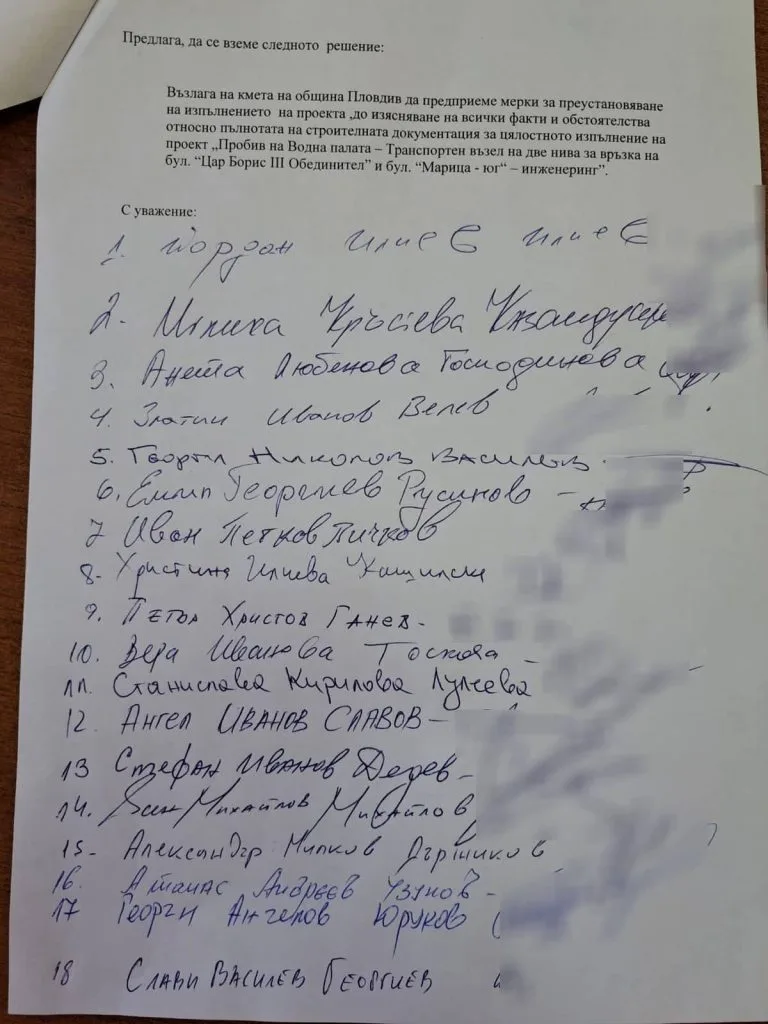 Предлага, да се вземе следното решение:
Възлага на кмета на община Пловдив да предприеме мерки за преустановяване
на изпълнението на проекта ,до изясняване на всички факти и обстоятелства
относно пълнотата на строителната документация за цялостното изпълнение на
проект „Пробив на Водна палата – Транспортен възел на две нива за връзка на
бул. “Цар Борис III Обединител” и бул. “Марица - юг“ – инженеринг”.
С уважение:
1. Йордан Илиев Илиев
2.
3. Анета Любенова Господинова
4. Златин Иванов Велев
5. Георги Николов Василев
6. Емил Георгиев Русинов -
7 Иван Петков Пичков
8. Христина Илиева
9. Петър Христов Ганев -
10. Вера Иванова Тоскова -
11. Станислава Кирилова Лулчева
12. Ангел Иванов Славов -
13 Стефан Иванов Дедев -
14. Михайлов Михайлов
15- Александър Милков Държиков
16. Атанас Андреев Узунов -
17 Георги Ангелов Юруков
18 Слави Василев Георгиев